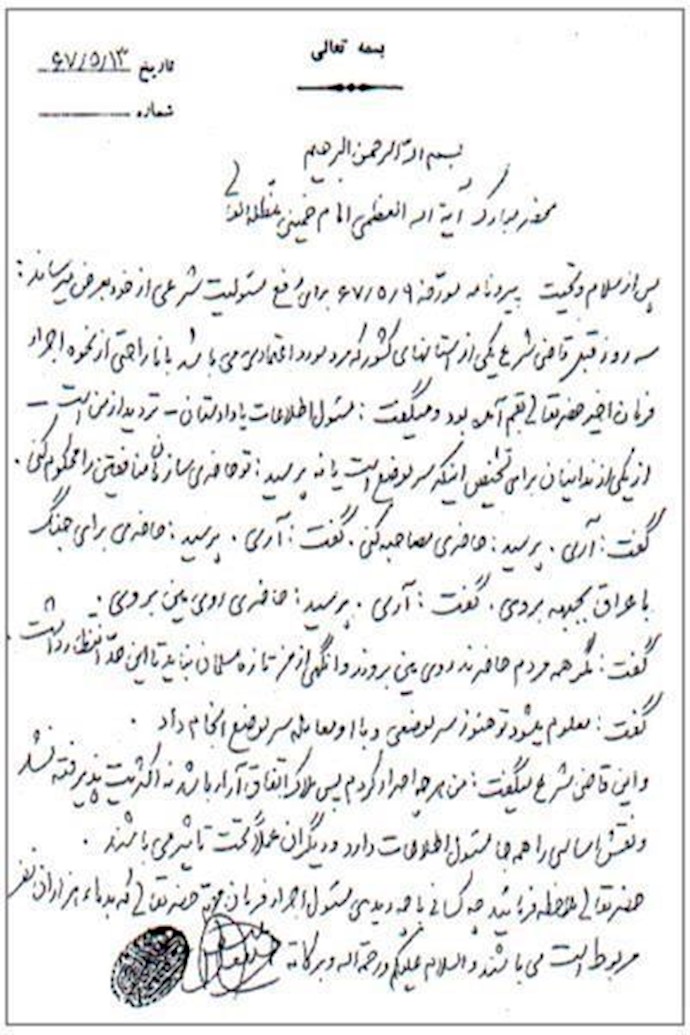 بسمه تعالی
تاریخ ۶۷/۵/۱۳
شماره
بسم الله الرحمن الرحیم
محضر مبارک آیة الله العظمی امام خمینی مدظله العالی
پس از سلام و تحیت پیرو نامه مورّخه ۶۷/۵/۹ برای رفع مسئولیت شرعی از خود بعرض میرساند :
سه روز قبل قاضی شرع یکی از استانهای کشور که مرد مورد اعتمادی می باشد با ناراحتی از نحوه اجراء
فرمان اخیر حضرتعالی بقم آمده بود و میگفت : مسئول اطلاعات یا دادستان - تردید از من است -
از یکی از زندانیان برای تشخیص اینکه سر موضع است یا نه پرسید : تو حاضری سازمان منافقین را محکوم کنی .
گفت : آری . پرسید : حاضری مصاحبه کنی . گفت : آری . پرسید : حاضری برای جنگ
با عراق بجبهه بروی . گفت : آری . پرسید : حاضری روی مین بروی .
گفت : مگر همه مردم حاضرند روی مین بروند وانگهی از من تازه مسلمان نباید تا این حدّ انتظار داشت .
گفت : معلوم میشود تو هنوز سر موضعی و با او معامله سر موضع انجام داد .
و این قاضی شرع میگفت : من هر چه اصرار کردم پس ملاک اتفاق آراء باشد نه اکثریت پذیرفته نشد
و نقش اساسی را همه جا مسئول اطلاعات دارد و دیگران عملاً تحت تاثیر می باشند .
حضرتعالی ملاحظه فرمائید چه کسانی با چه دیدی مسئول اجراء فرمان مهم حضرتعالی که بدماء هزاران نفر
مربوط است می باشند والسلام علیکم ورحمة الله وبرکاته